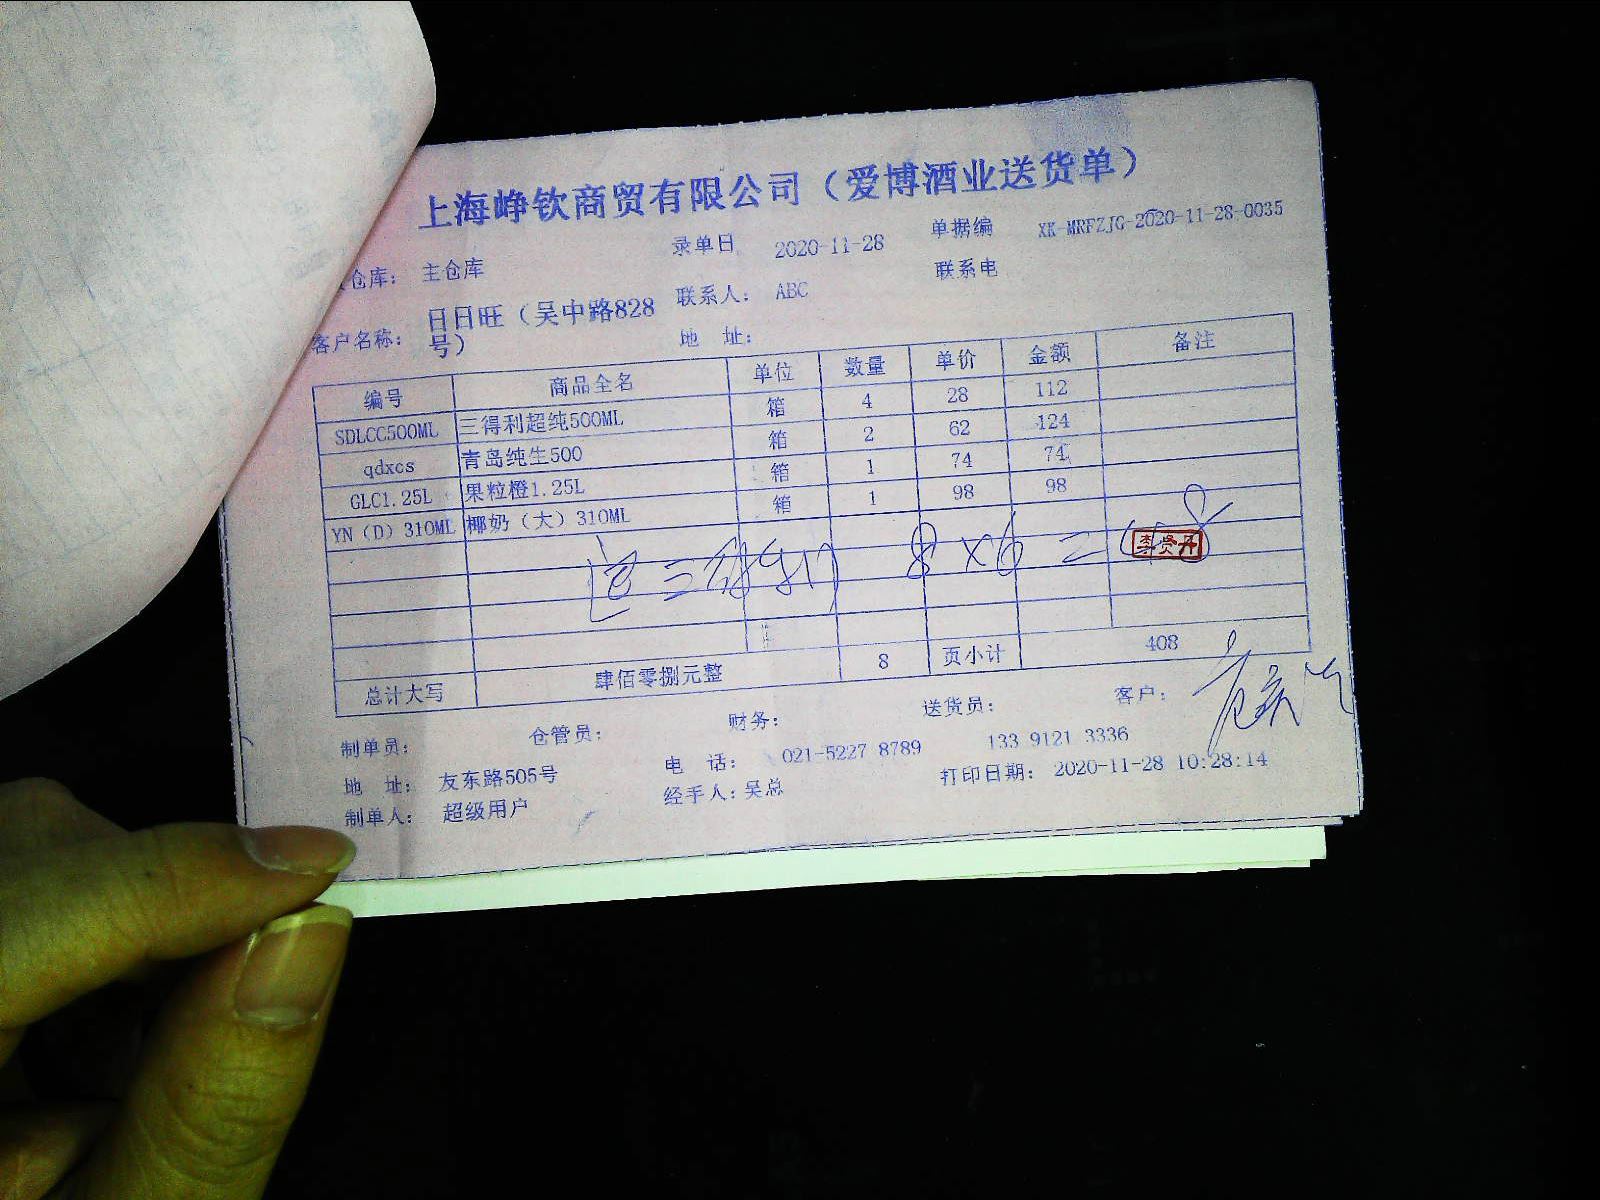 上海峥钦商贸有限公司（爱博酒业送货单）
仓库： 主仓库 录单日 2020-11-28 单据编 XK-MRFZJG-2020-11-28-0035
客户名称： 日日旺（吴中路828号） 联系人： ABC 联系电
地 址：
编号 商品全名 单位 数量 单价 金额 备注
SDLCC500ML 三得利超纯500ML 箱 4 28 112
qdxcs 青岛纯生500 箱 2 62 124
GLC1.25L 果粒橙1.25L 箱 1 74 74
YN（D）310ML 椰奶（大）310ML 箱 1 98 98
8×6=
总计大写 肆佰零捌元整 8 页小计 408
制单员： 仓管员： 财务： 送货员： 客户：
地 址： 友东路505号 电 话： 021-5227 8789 133 9121 3336
制单人： 超级用户 经手人：吴总 打印日期： 2020-11-28 10:28:14